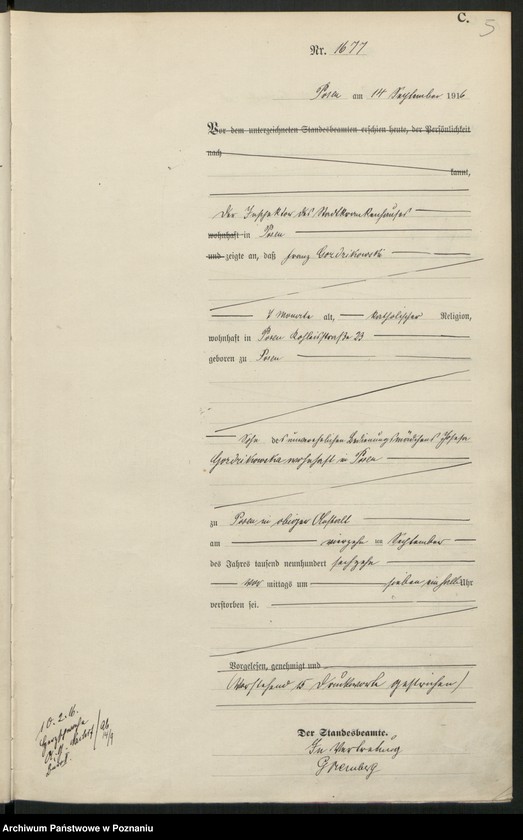 C.
5
Nr. 1677
Posen am 14 September 1916
Vor dem unterzeichneten Standesbeamten erschien heute, der Persönlichkeit
nach
kannt,
Der Inspektor des Stadtkrankenhauses
wohnhaft in Posen
und zeigte an, daß Franz Gozdzikowski
Monate alt, katholischer Religion,
wohnhaft in Posen straße 23
geboren zu Posen
Sohn des unverehelichen Bedienungsmädchens Josefa
Gozdzikowska wohnhaft in Posen
zu Posen in obiger Anstalt
am vierzehn September
des Jahres tausend neunhundert sechzehn
vor mittags um sieben einhalb Uhr
verstorben sei.
Vorgelesen, genehmigt und
(Vorstehend 15 Druckworte gestrichen)
10. 2. 16.
Der Standesbeamte.
In Vertretung
Archiwum Państwowe w Poznaniu